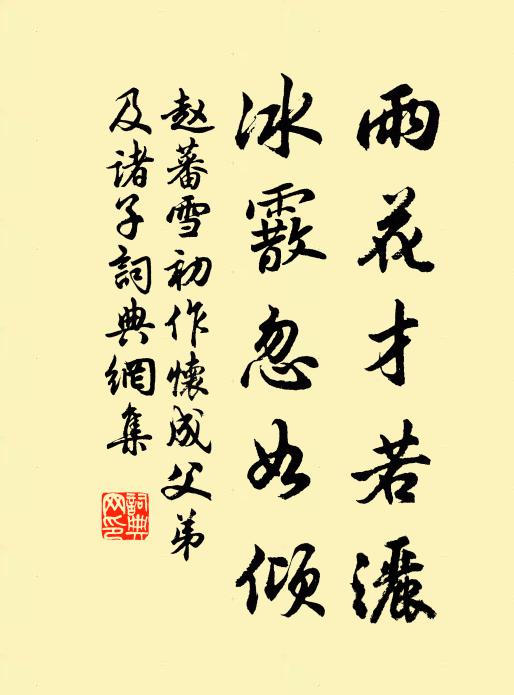 雨花才若灑
冰霰忽如傾
赵蕃雪初作懷成父弟
及諸子詞典網集
詞典網印